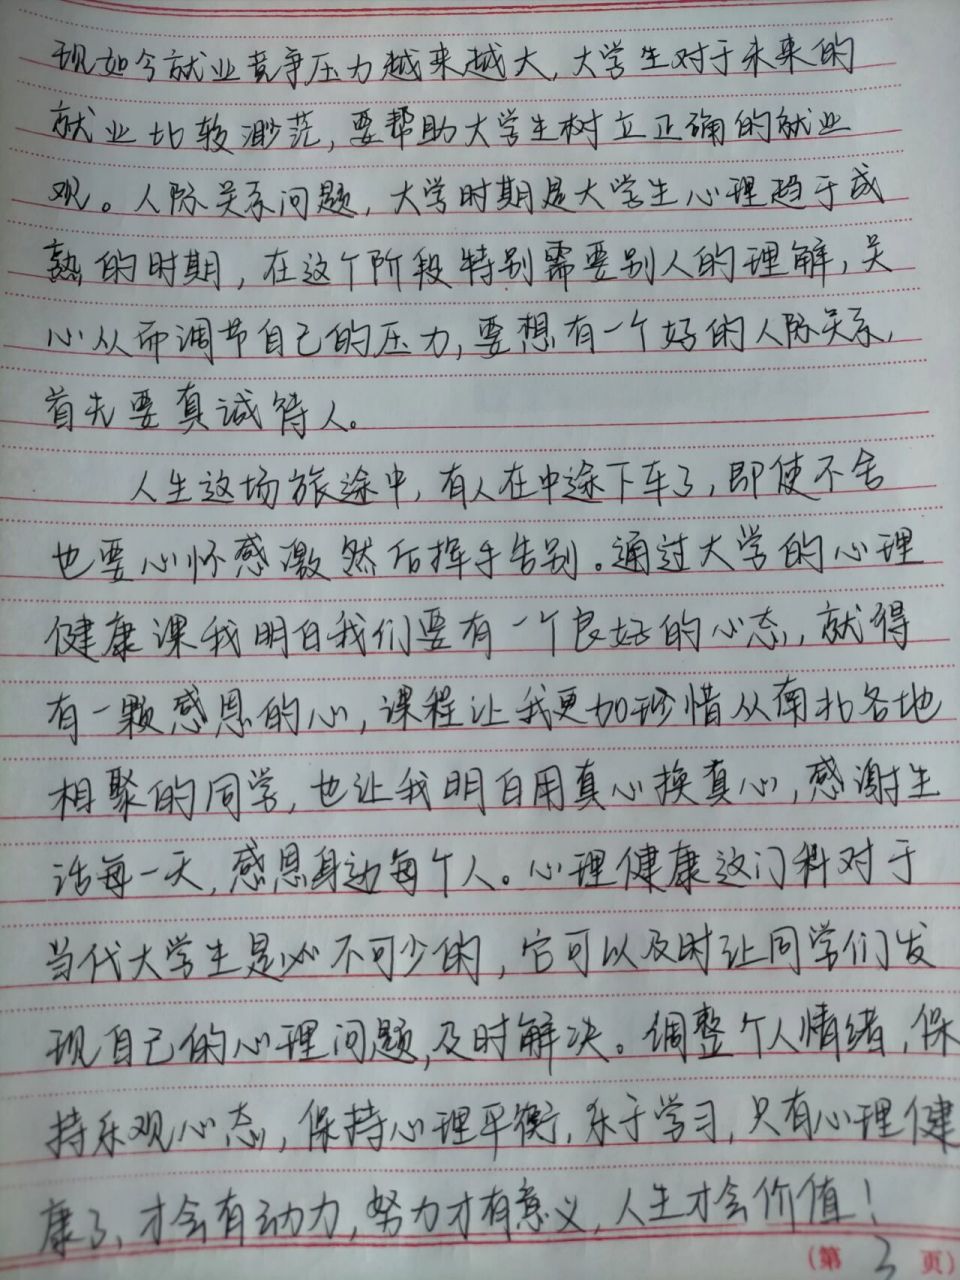 现如今就业竞争压力越来越大，大学生对于未来的
就业比较渺茫，要帮助大学生树立正确的就业
观。人际关系问题，大学时期是大学生心理趋于成
熟的时期，在这个阶段特别需要别人的理解，关
心从而调节自己的压力，要想有一个好的人际关系，
首先要真诚待人。
人生这场旅途中，有人在中途下车了，即使不舍
也要心怀感激然后挥手告别。通过大学的心理
健康课我明白我们要有一个良好的心态，就得
有一颗感恩的心，课程让我更加珍惜从南北各地
相聚的同学，也让我明白用真心换真心，感谢生
活每一天，感恩身边每个人。心理健康这门科对于
当代大学生是必不可少的，它可以及时让同学们发
现自己的心理问题，及时解决。调整个人情绪，保
持乐观心态，保持心理平衡，乐于学习，只有心理健
康了，才会有动力，努力才有意义，人生才会价值！
（第 3 页）